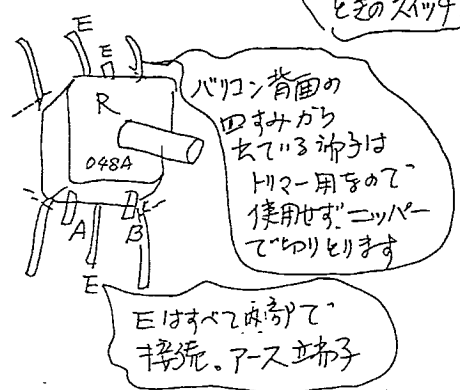 ときのスイッチ
E
E
R
048A
A
B
E
バリコン背面の
四すみから
出ている端子は
トリマー用なので
使用せず、ニッパー
で切りとります
Eはすべて内部で
接続。アース端子